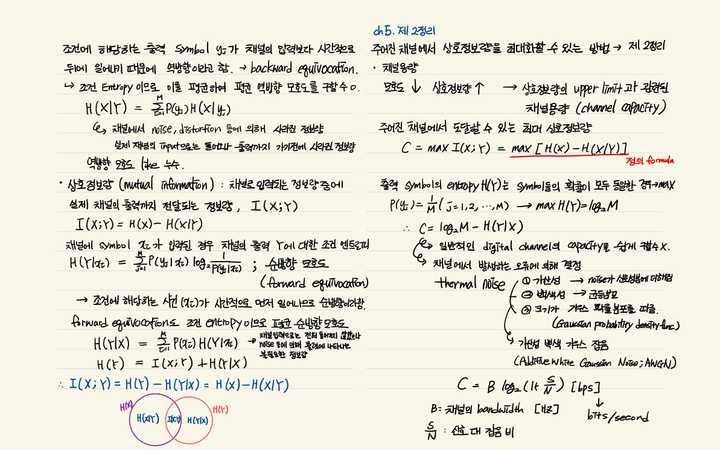 조건에 해당하는 출력 symbol yj가 채널의 입력보다 시간적으로
뒤에 일어나기 때문에 역방향이라고 함. → backward equivocation.
↳ 조건 Entropy 이므로 이를 평균하여 평균 역방향 모호도를 구할 수 o.
H(X|Y) = Σ P(yj) H(X|yj)
↳ 채널에서 noise, distortion 등에 의해 사라진 정보량
실제 채널의 input으로는 들어와 출력까지 가기전에 사라진 정보량
역방향 모호도 like 누수.
· 상호정보량 (mutual information) : 채널로 입력되는 정보량 중에
실제 채널의 출력까지 전달되는 정보량, I(X;Y)
I(X;Y) = H(X) - H(X|Y)
채널에 symbol xi가 입력된 경우 채널의 출력 Y에 대한 조건 엔트로피
H(Y|xi) = Σ P(yj|xi) log₂ 1/P(yj|xi) ; 순방향 모호도
(forward equivocation)
→ 조건에 해당하는 사건 (xi)가 시간적으로 먼저 일어나므로 순방향이라함.
forward equivocation도 조건 entropy 이므로 평균 순방향 모호도
H(Y|X) = Σ P(xi) H(Y|xi)
→ 채널입력으로는 전혀 들어가지 않았으나
noise 등에 의해 출력에 나타나는
불필요한 정보량
H(Y) = I(X;Y) + H(Y|X)
∴ I(X;Y) = H(Y) - H(Y|X) = H(X) - H(X|Y)
H(X)
H(X|Y)
I(X;Y)
H(Y|X)
H(Y)
ch5. 제 2정리
주어진 채널에서 상호정보량을 최대화할 수 있는 방법 → 제 2정리
· 채널용량
모호도 ↓ 상호정보량 ↑ → 상호정보량의 upper limit과 관련된
채널용량 (channel capacity)
주어진 채널에서 도달할 수 있는 최대 상호정보량
C = max I(X;Y) = max [H(X) - H(X|Y)]
정의 formula
출력 symbol의 entropy H(Y)는 symbol들의 확률이 모두 동일한 경우 → max
P(yj) = 1/M (j=1,2,…,M) → max H(Y) = log₂M
∴ C = log₂M - H(Y|X)
↳ 일반적인 digital channel의 capacity를 쉽게 구할수 x.
↳ 채널에서 발생하는 오류에 의해 결정
thermal noise
① 가산성 → noise가 신호성분에 더해짐
② 백색성 → 균등분포
③ 크기가 가우스 확률분포를 따름.
(Gaussian probability density func)
가산성 백색 가우스 잡음
(Additive White Gaussian Noise; AWGN)
C = B log₂(1+ S/N) [bps]
bits/second
B: 채널의 bandwidth [Hz]
S/N : 신호 대 잡음 비